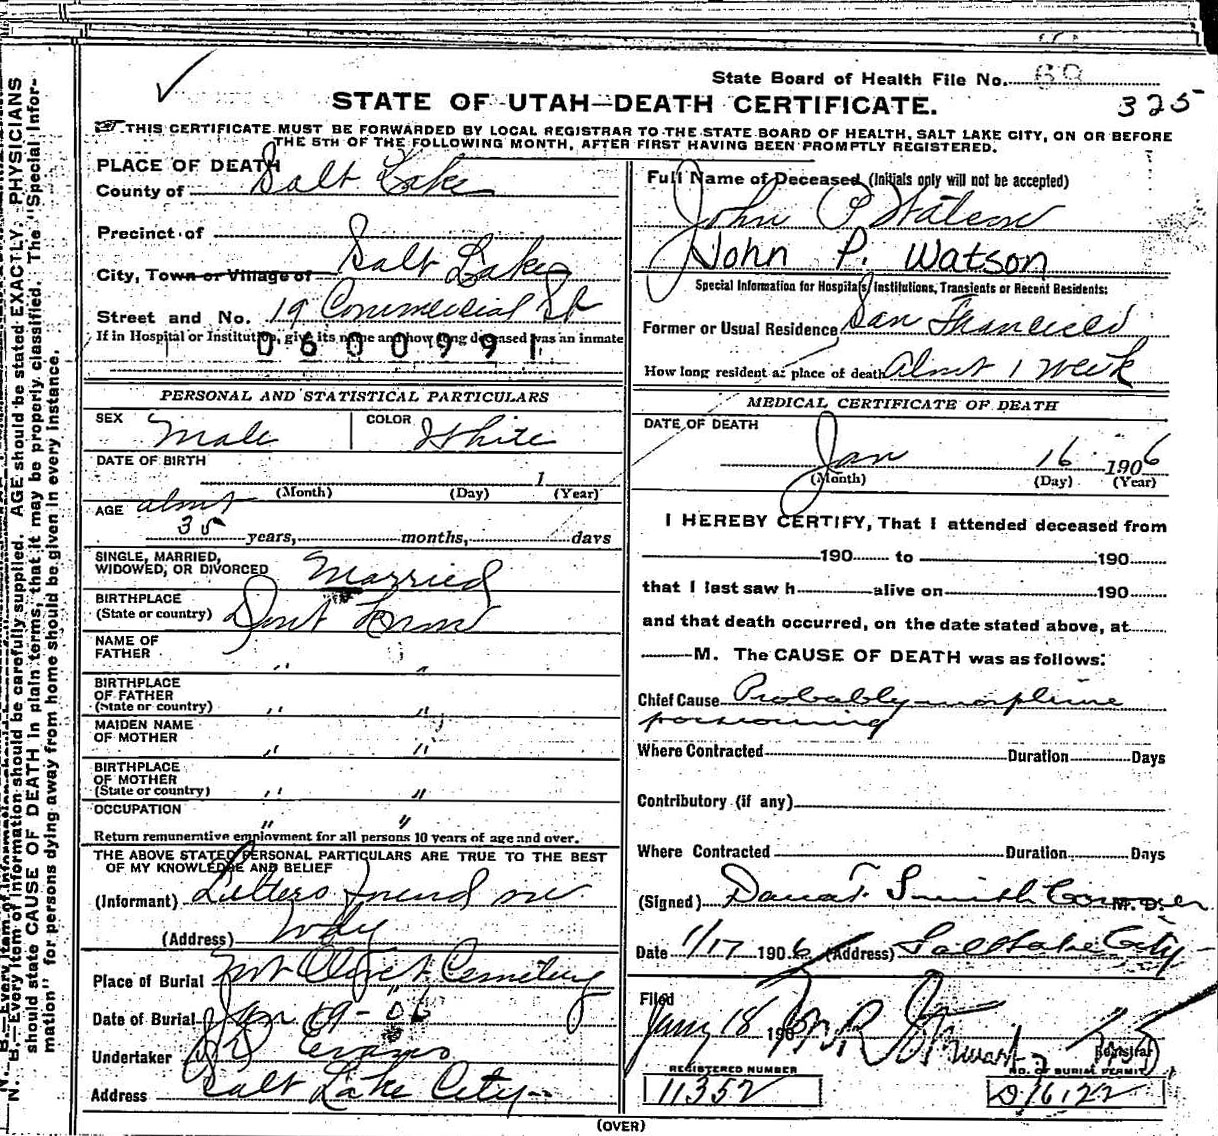 State Board of Health File No. 69
STATE OF UTAH—DEATH CERTIFICATE.
325
THIS CERTIFICATE MUST BE FORWARDED BY LOCAL REGISTRAR TO THE STATE BOARD OF HEALTH, SALT LAKE CITY, ON OR BEFORE
THE 5TH OF THE FOLLOWING MONTH, AFTER FIRST HAVING BEEN PROMPTLY REGISTERED.
PLACE OF DEATH
County of Salt Lake
Precinct of
City, Town or Village of Salt Lake
Street and No. 19 Commercial St
If in Hospital or Institution, give its name and how long deceased was an inmate
0600991
PERSONAL AND STATISTICAL PARTICULARS
SEX Male COLOR White
DATE OF BIRTH
1
(Month) (Day) (Year)
AGE almt
35 years, months, days
SINGLE, MARRIED,
WIDOWED, OR DIVORCED Married
BIRTHPLACE
(State or country) Dont Know
NAME OF
FATHER " "
BIRTHPLACE
OF FATHER
(State or country) " "
MAIDEN NAME
OF MOTHER " "
BIRTHPLACE
OF MOTHER
(State or country) " "
OCCUPATION " "
Return remunerative employment for all persons 10 years of age and over.
THE ABOVE STATED PERSONAL PARTICULARS ARE TRUE TO THE BEST
OF MY KNOWLEDGE AND BELIEF
(Informant) Letters found on
(Address) body
Place of Burial Mt Olivet Cemetery
Date of Burial Jan 19-06
Undertaker Evans
Address Salt Lake City
Full Name of Deceased (Initials only will not be accepted)
John P Watson
John P. Watson
Special Information for Hospitals, Institutions, Transients or Recent Residents:
Former or Usual Residence San Francisco
How long resident at place of death almt 1 week
MEDICAL CERTIFICATE OF DEATH
DATE OF DEATH
Jan 16 1906
(Month) (Day) (Year)
I HEREBY CERTIFY, That I attended deceased from
190 to 190
that I last saw h alive on 190
and that death occurred, on the date stated above, at
M. The CAUSE OF DEATH was as follows:
Chief Cause Probably morphine
poisoning
Where Contracted Duration Days
Contributory (if any)
Where Contracted Duration Days
(Signed) Dana T. Smith Coroner M.D.
Date 1/17 1906 (Address) Salt Lake City
Filed
Jany 18 190 Stewart
Registrar
REGISTERED NUMBER
11352
NO. OF BURIAL PERMIT
D16122
(OVER)
N. B.—Every item of information should be carefully supplied. AGE should be stated EXACTLY. PHYSICIANS
should state CAUSE OF DEATH in plain terms, that it may be properly classified. The "Special Infor-
mation" for persons dying away from home should be given in every instance.